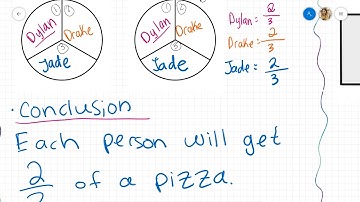 ① ②
Dylan Drake
Jade
① ②
Dylan Drake
③
Jade
Dylan = 2/3
Drake = 2/3
Jade = 2/3
· Conclusion
Each person will get
2/ of a pizza.